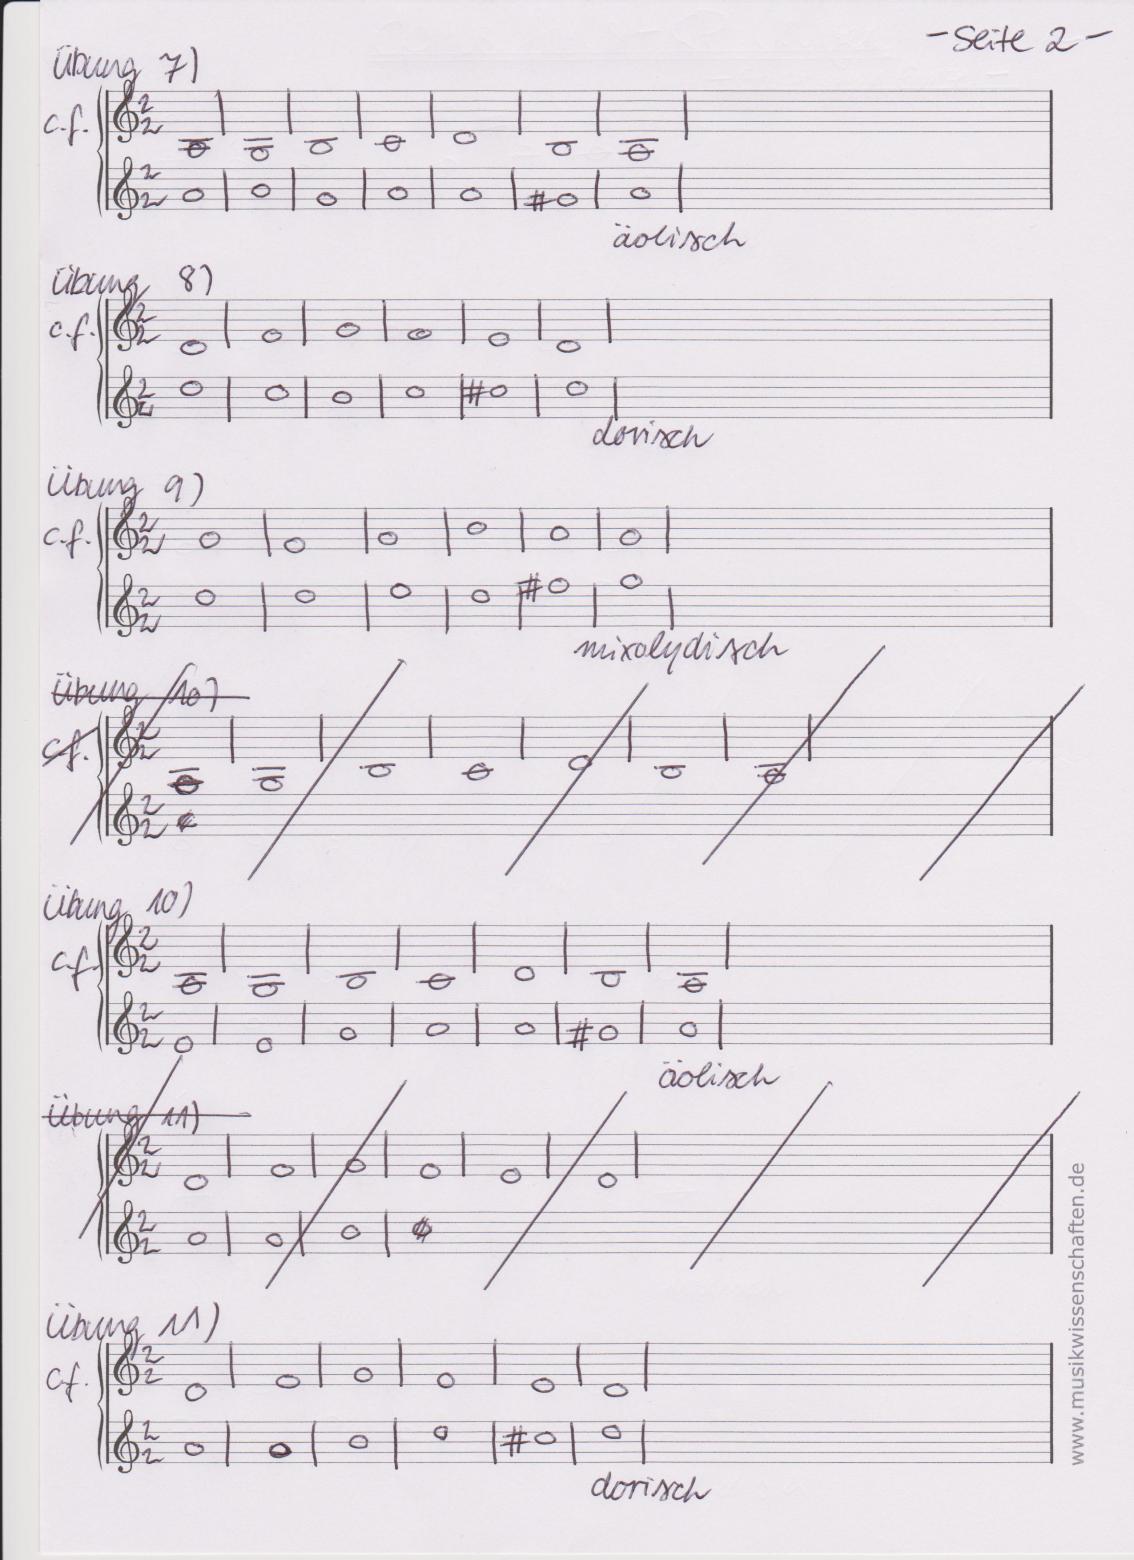 - Seite 2 -
Übung 7)
c.f.
äolisch
Übung 8)
c.f.
dorisch
Übung 9)
c.f.
mixolydisch
Übung 10)
c.f.
Übung 10)
c.f.
äolisch
Übung 11)
Übung 11)
c.f.
dorisch
www.musikwissenschaften.de